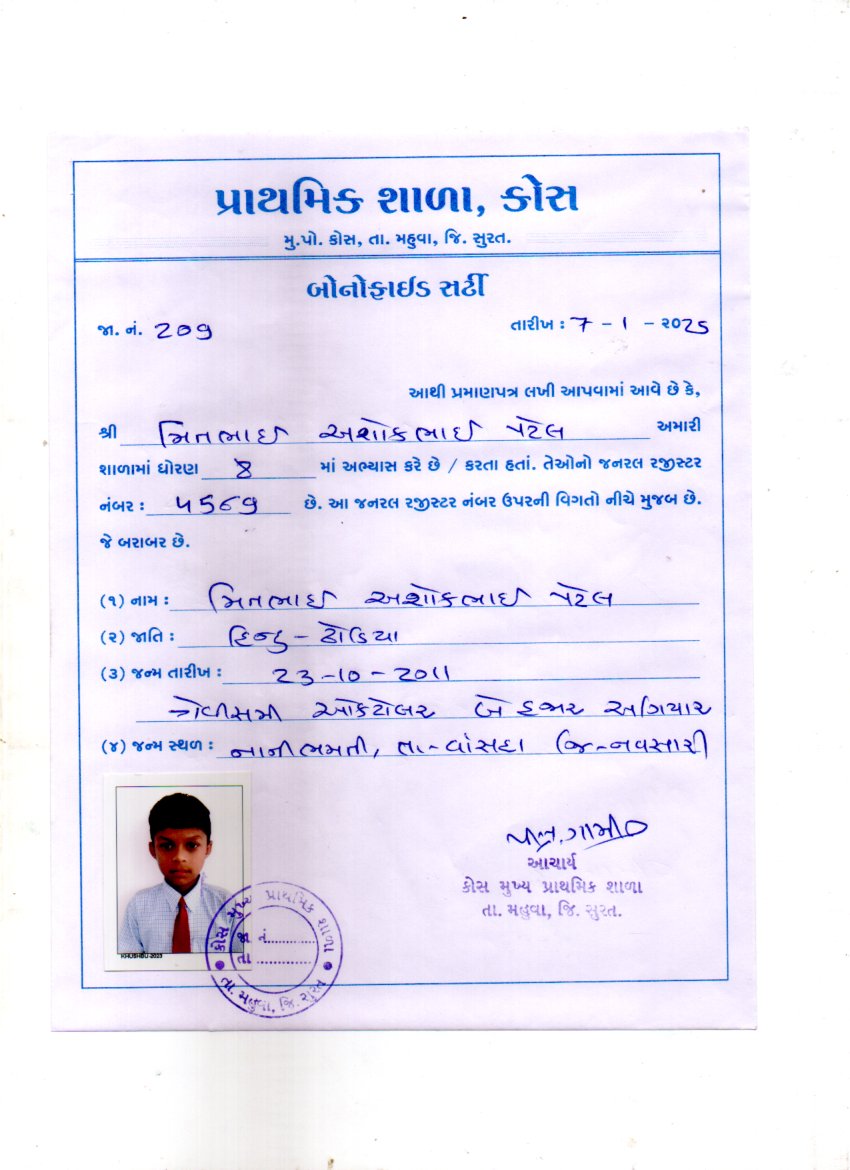 પ્રાથમિક શાળા, કોસ
મુ.પો. કોસ, તા. મહુવા, જિ. સુરત.
બોનોફાઈડ સર્ટી
જા. નં. 209
તારીખ : 7 - 1 - ૨૦25
આથી પ્રમાણપત્ર લખી આપવામાં આવે છે કે,
શ્રી મિતભાઈ અશોકભાઈ પટેલ અમારી
શાળામાં ધોરણ 8 માં અભ્યાસ કરે છે / કરતા હતાં. તેઓનો જનરલ રજીસ્ટર
નંબર : 4569 છે. આ જનરલ રજીસ્ટર નંબર ઉપરની વિગતો નીચે મુજબ છે.
જે બરાબર છે.
(૧) નામ : મિતભાઈ અશોકભાઈ પટેલ
(૨) જાતિ : હિન્દુ - ઢોડિયા
(૩) જન્મ તારીખ : 23 - 10 - 2011
ત્રેવીસમી ઓકટોબર બે હજાર અગિયાર
(૪) જન્મ સ્થળ : નાનીભમતી, તા - વાંસદા જિ - નવસારી
આચાર્ય
કોસ મુખ્ય પ્રાથમિક શાળા
તા. મહુવા, જિ. સુરત.
KHUSHBU-2023
કોસ મુખ્ય પ્રાથમિક શાળા
જા નં..........
તા ............
તા. મહુવા, જિ. સુરત